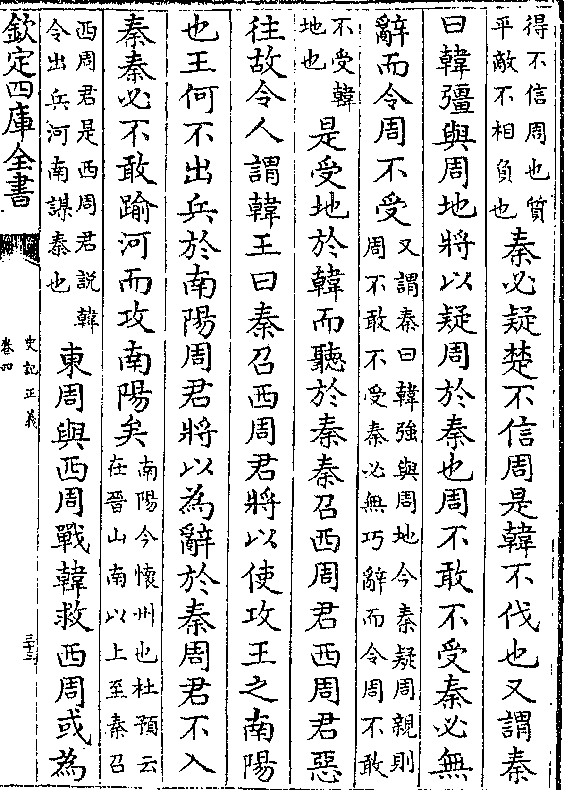 得不信周也質
平敵不相負也
秦必疑楚不信周是韓不伐也又謂秦
曰韓彊與周地將以疑周於秦也周不敢不受秦必無
辭而令周不受
又謂秦曰韓強與周地今秦疑周親則
周不敢不受秦必無巧辭而令周不敢
不受韓
地也
是受地於韓而聽於秦秦召西周君西周君惡
往故令人謂韓王曰秦召西周君將以使攻王之南陽
也王何不出兵於南陽周君將以為辭於秦周君不入
秦秦必不敢踰河而攻南陽矣
南陽今懷州也杜預云
在晉山南以上至秦召
西周君是西周君説韓
令出兵河南謀秦也
東周與西周戰韓救西周或為
欽定四庫全書
史記正義
卷四
三十三